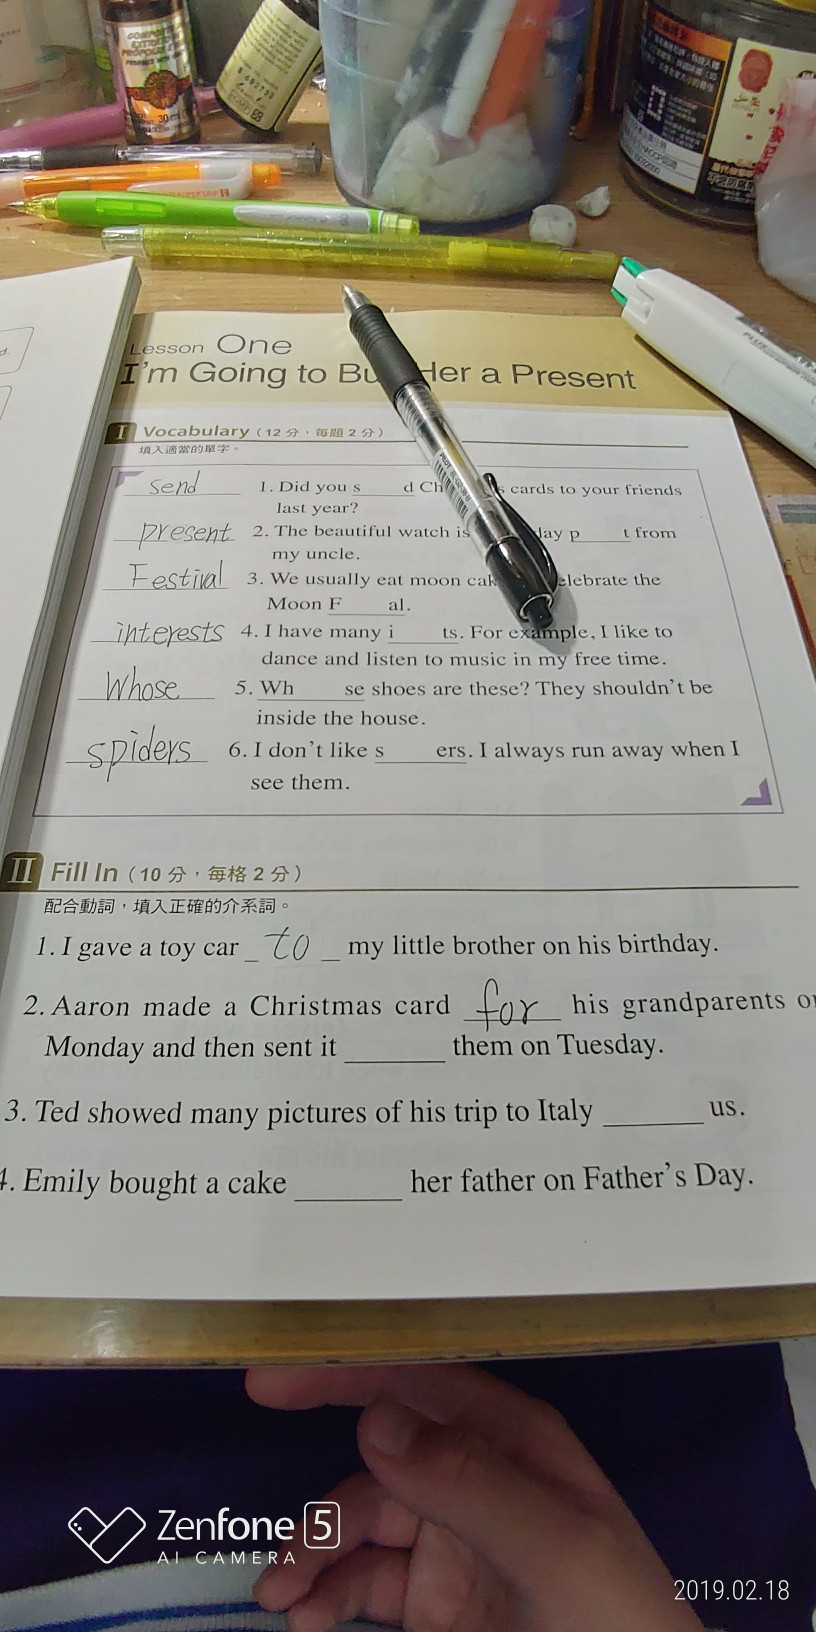 COMPOSTO
EXTRA
PROPOLIS
30 ml
Lesson One
I'm Going to Bu Her a Present
I Vocabulary (12 分，每題 2 分)
填入適當的單字。
send 1. Did you s____d Ch s cards to your friends
last year?
present 2. The beautiful watch is day p____t from
my uncle.
Festival 3. We usually eat moon cak elebrate the
Moon F____al.
interests 4. I have many i____ts. For example, I like to
dance and listen to music in my free time.
Whose 5. Wh____se shoes are these? They shouldn't be
inside the house.
spiders 6. I don't like s____ers. I always run away when I
see them.
II Fill In (10 分，每格 2 分)
配合動詞，填入正確的介系詞。
1. I gave a toy car _to_ my little brother on his birthday.
2. Aaron made a Christmas card for his grandparents on
Monday and then sent it ______ them on Tuesday.
3. Ted showed many pictures of his trip to Italy ______ us.
4. Emily bought a cake ______ her father on Father's Day.
PILOT
Zenfone 5
AI CAMERA
2019.02.18